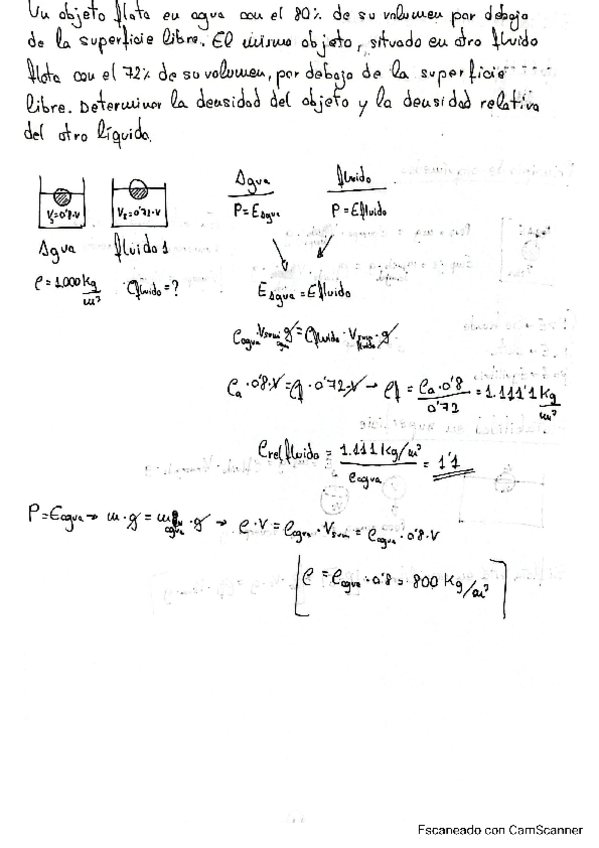 Un objeto flota en agua con el 80% de su volumen por debajo
de la superficie libre. El mismo objeto, situado en otro fluido
flota con el 72% de su volumen, por debajo de la superficie
libre. Determinar la densidad del objeto y la densidad relativa
del otro líquido.
Agua fluido
Vs=0'8·V Vs=0'72·V P=EAgua P=Efluido
Agua fluido 1
ρ=1.000 kg/m³ ρfluido=?
EAgua=Efluido
ρagua·Vsum agua·g=ρfluido·Vsum fluido·g
ρa·0'8·V=ρf·0'72·V → ρf = ρa·0'8/0'72 = 1.111'1 kg/m³
ρrel,fluido = 1.111 kg/m³/ρagua = 1'1
P=Eagua → m·g=m agua·g → ρ·V=ρagua·Vsum=ρagua·0'8·V
ρ=ρagua·0'8=800 kg/m³
Escaneado con CamScanner